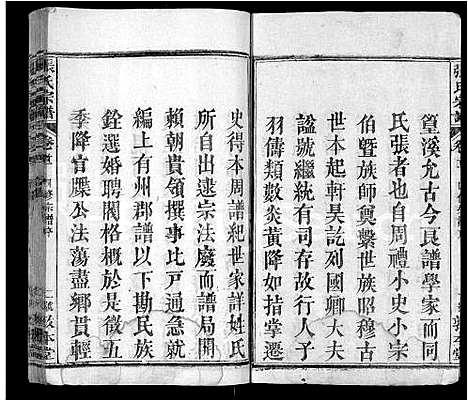 篁溪允古今良譜學家而三
氏張者也自周禮小史小宗
伯曁族師奠繫世族昭穆古
世本起軒昊訖列國卿大夫
諡號繼統有司存故行人予
羽儔類炎黃降如指掌遷
史得本周譜紀世家詳姓氏
所出自逮宗法廢而譜局開
賴朝貴領撰事比戸通急就
上有州郡譜以下勘民族
銓選婚聘閥格概於是徵五
季降官牒公法蕩盡鄉貫輕
張氏宗譜
卷首
敦本堂